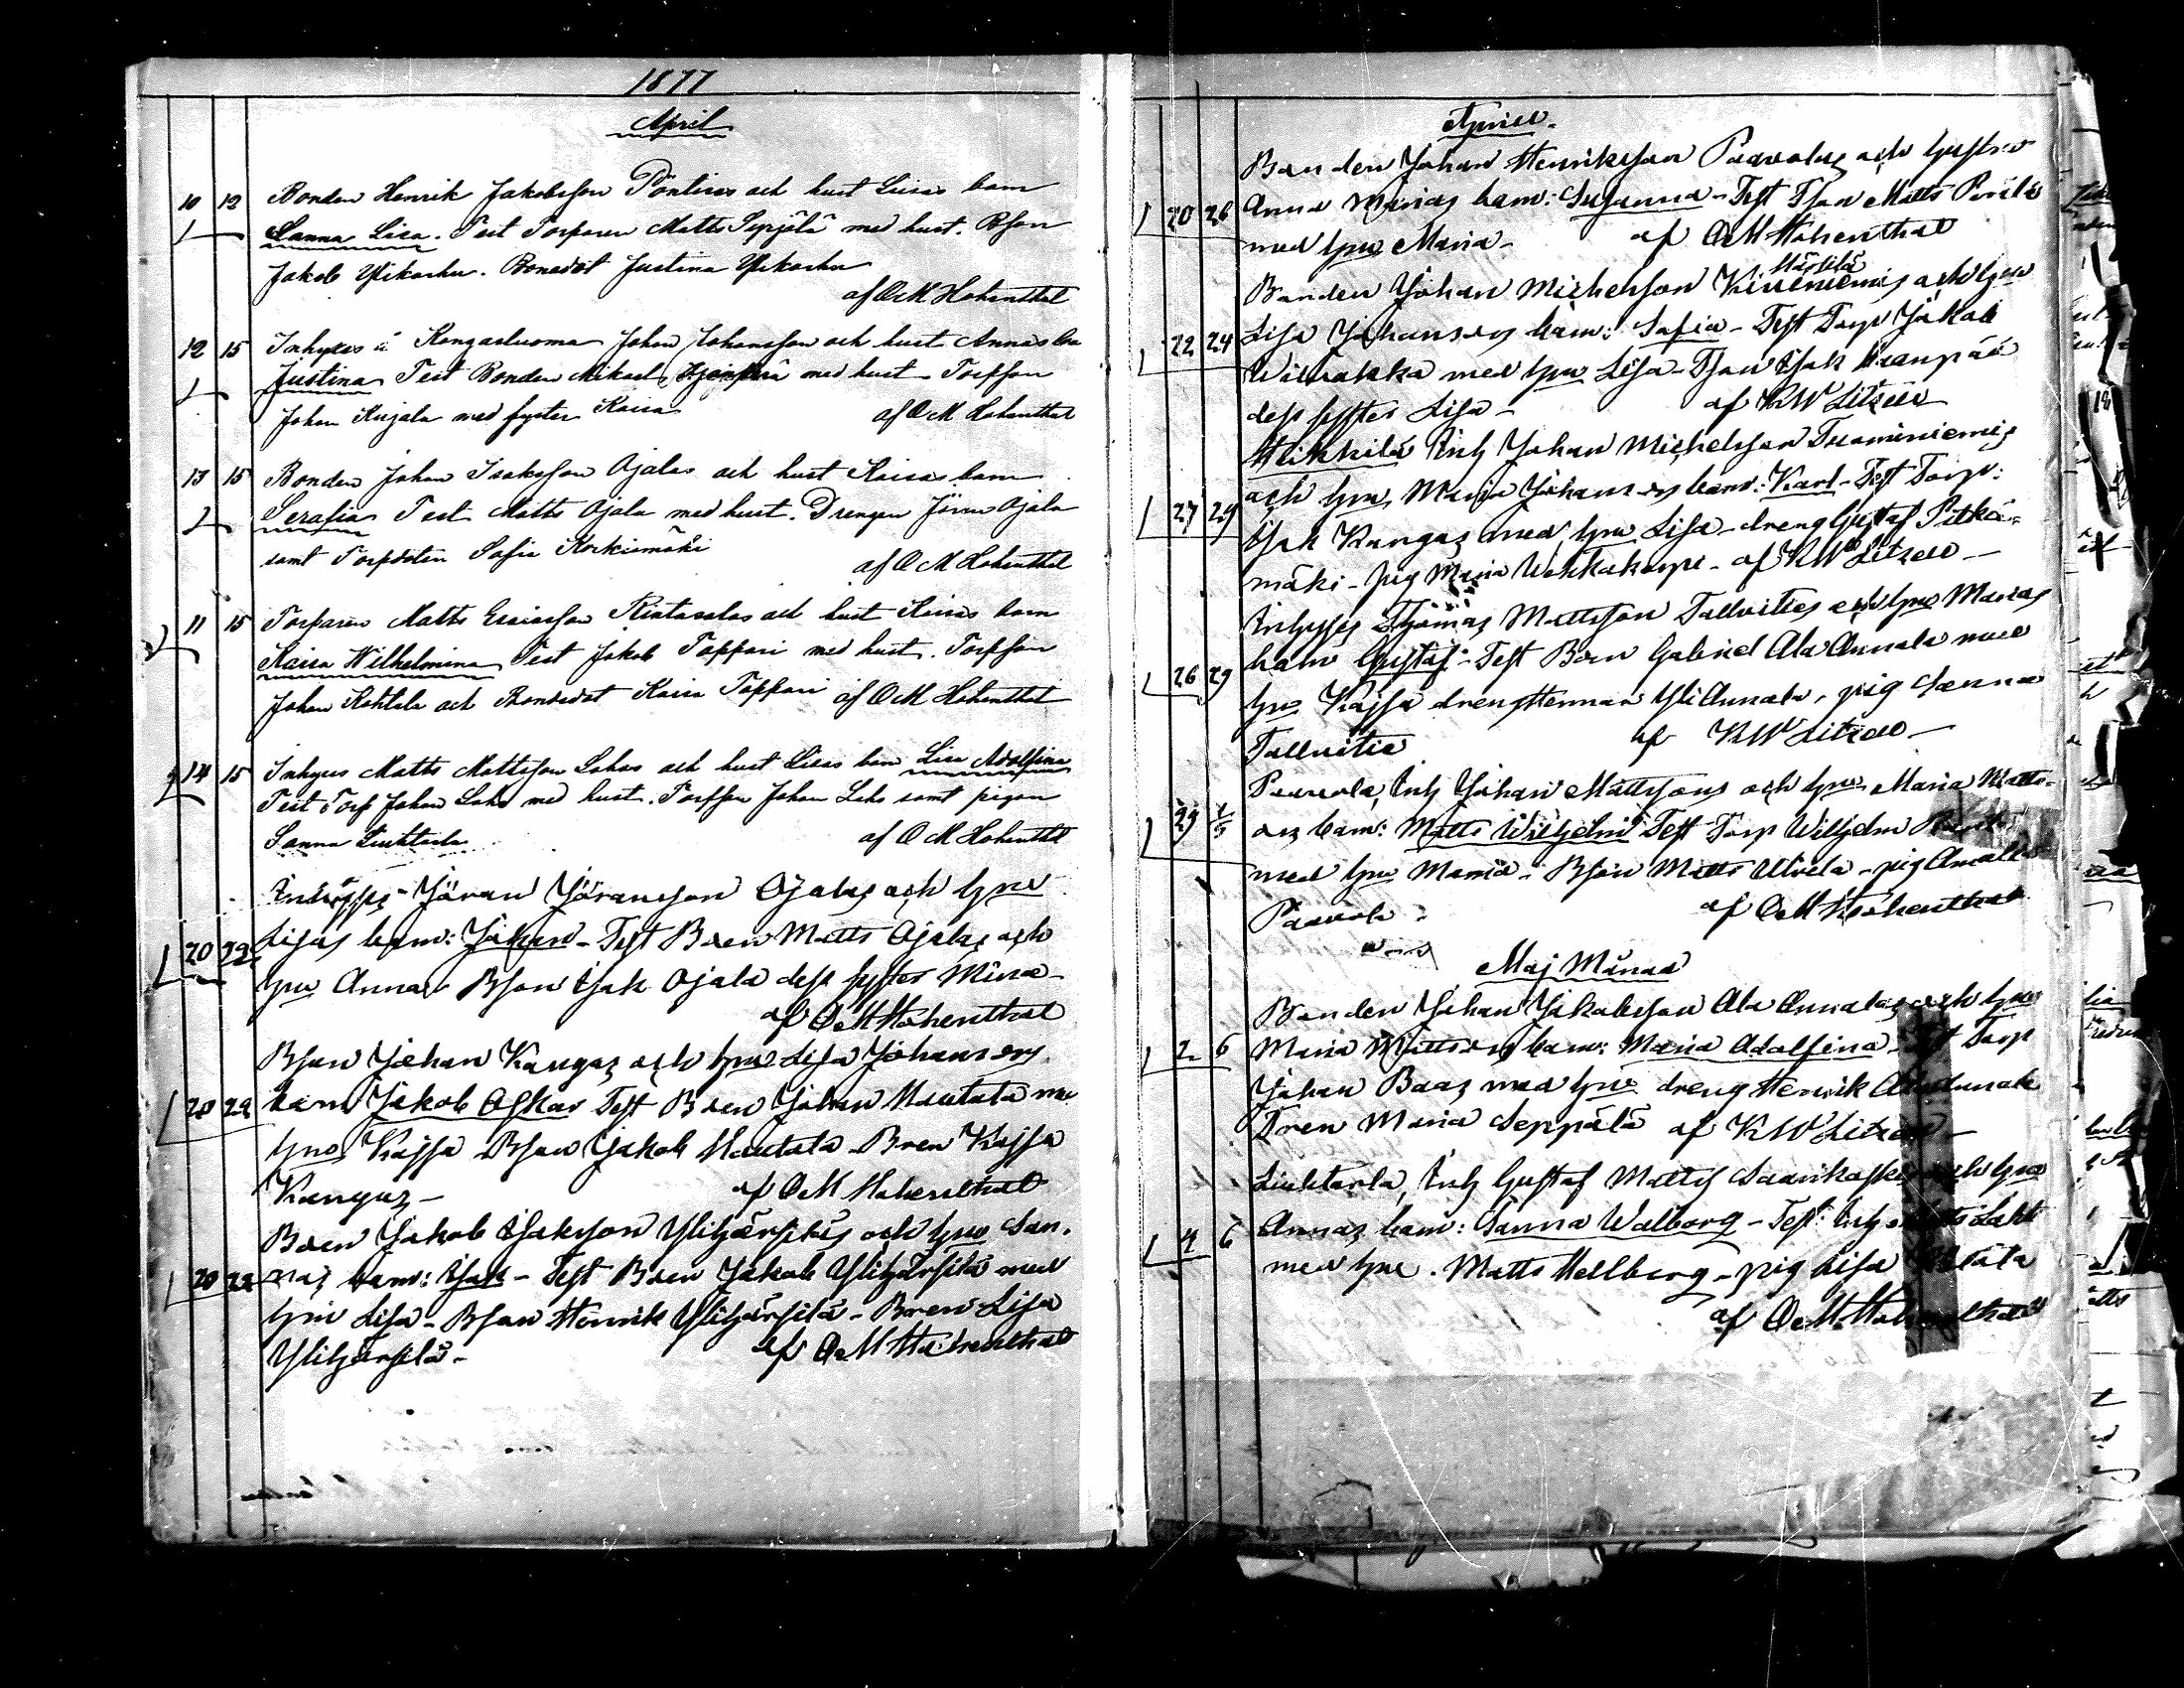 1877
April
10 12 Bonden Henrik Jakobsson Pöntis och hust Lisas barn
Sanna Lisa. Test Torparen Matts Seppälä med hust. Bson
Jakob Ylikarhu. Bonedot Justina Ylikarhu
af O M Hohenthal
12 15 Inhyses å Kangasluoma Johan Johansson och hust Annas bn
Justina Test Bonden Mikael med hust Torpson
Johan Kujala med syster Kaisa af O M Hohenthal
13 15 Bonden Johan Isaksson Ojalas och hust Kaisas barn
Serafia Test Matts Ojala med hust. Drengen Jöran Ojala
samt Torpdotin Sofia Korkiamäki
af O M Hohenthal
11 15 Torparen Matts Esaiasson Rintasalos och hust Kaisas barn
Kaisa Wilhelmina Test Jakob Toppari med hust. Torpson
Johan Kohtala och Bondedot Kaisa Toppari af O M Hohenthal
14 15 Inhyses Matts Mattsson Lahos och hust Lisas barn Lisa Adolfina
Test Torp Johan Laho med hust. Torpson Johan Laho samt pigan
Sanna Liuhtarla af O M Hohenthal
Inhyses Jöran Jöransson Ojalas och hru
20 22 Lisas barn: Johan - Test Boen Matts Ojalas och
hru Anna Bson Isak Ojala dess syster Mina
af O M Hohenthal
Bson Johan Kangas och hru Lisa Johansdrs
20 22 barn Jakob Oskar Test Boen Johan Hautala me
hru Kajsa Bson Jakob Hautala Bren Kajsa
Kangas - af O M Hohenthal
Boen Jakob Isaksson Ylihärsiläs och hru San.
20 22 nas barn: Isak - Test Boen Jakob Ylihärsilä med
hru Lisa - Bson Henrik Ylihärsilä - Bren Lisa
Ylihärsilä - af O M Hohenthal
April
Bonden Johan Henriksson Paavolas och hustru
20 26 Anna Marias barn: Susanna - Test Tson Matts Perälä
med hru Maria - af O M Hohenthal
Bonden Johan Michelsson Kiviniemis och hru
22 24 Lisa Johansdrs barn: Sofia - Test Torp Jakob
med hru Lisa - Tson Isak Haanpää
dess syster Lisa - af K W Litzell
Heikkilä Inh Johan Michelsson Tuominiemis
27 29 och hru Maria Johansdrs barn: Karl - Test Torp:
Isak Kangas med hru Lisa - dreng Gustaf Pitkä-
mäki - pig Maria - af K W Litzell -
Inhyses Thomas Mattsson Tallvities och hru Marias
26 29 barn Gustaf - Test Boen Gabriel Ala Annala med
hru Kajsa dreng Herman Yli Annala, pig Sanna
Tallvitie af K W Litzell -
Paavola, Inh Johan Mattssons och hru Maria Matts-
29 1/5 drs barn: Matts Wilhelm Test Torp Wilhelm
med hru Maria - Bson Matts Ulvila - pig Amalia
Paavola - af O M Hohenthal
Maj Månad
Bonden Johan Jakobsson Ala Annalas och hru
2 6 Maria Mattsdrs barn: Maria Adolfina - Test Torp
Johan Baas med hru dreng Henrik Ala Annala
Tren Maria Seppälä af K W Litzell -
Liuhtarla, Inh Gustaf Matts Saarikoskis och hru
4 6 Annas barn: Sanna Walborg - Test: Inh Matts Lahti
med hru. Matts Hellberg - pig Lisa
af O M Hohenthal